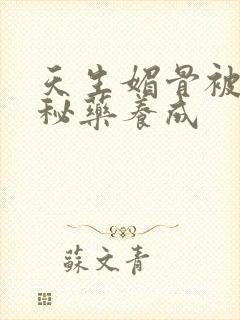 天生媚骨被
秘藥養成
蘇文青